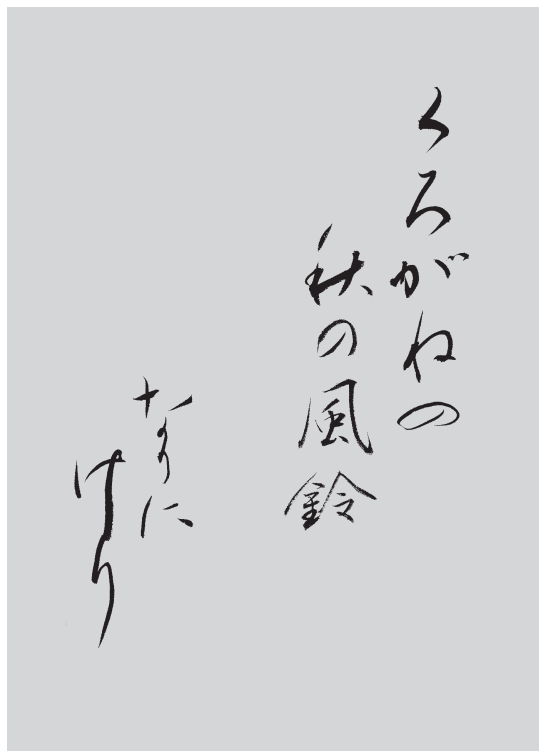 くろがねの
秋の風鈴
なりに
けり